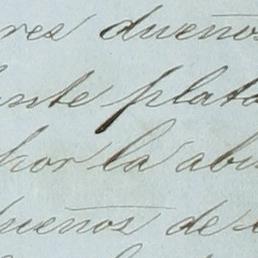 res dueños
ente plata
por la abu
dueños de